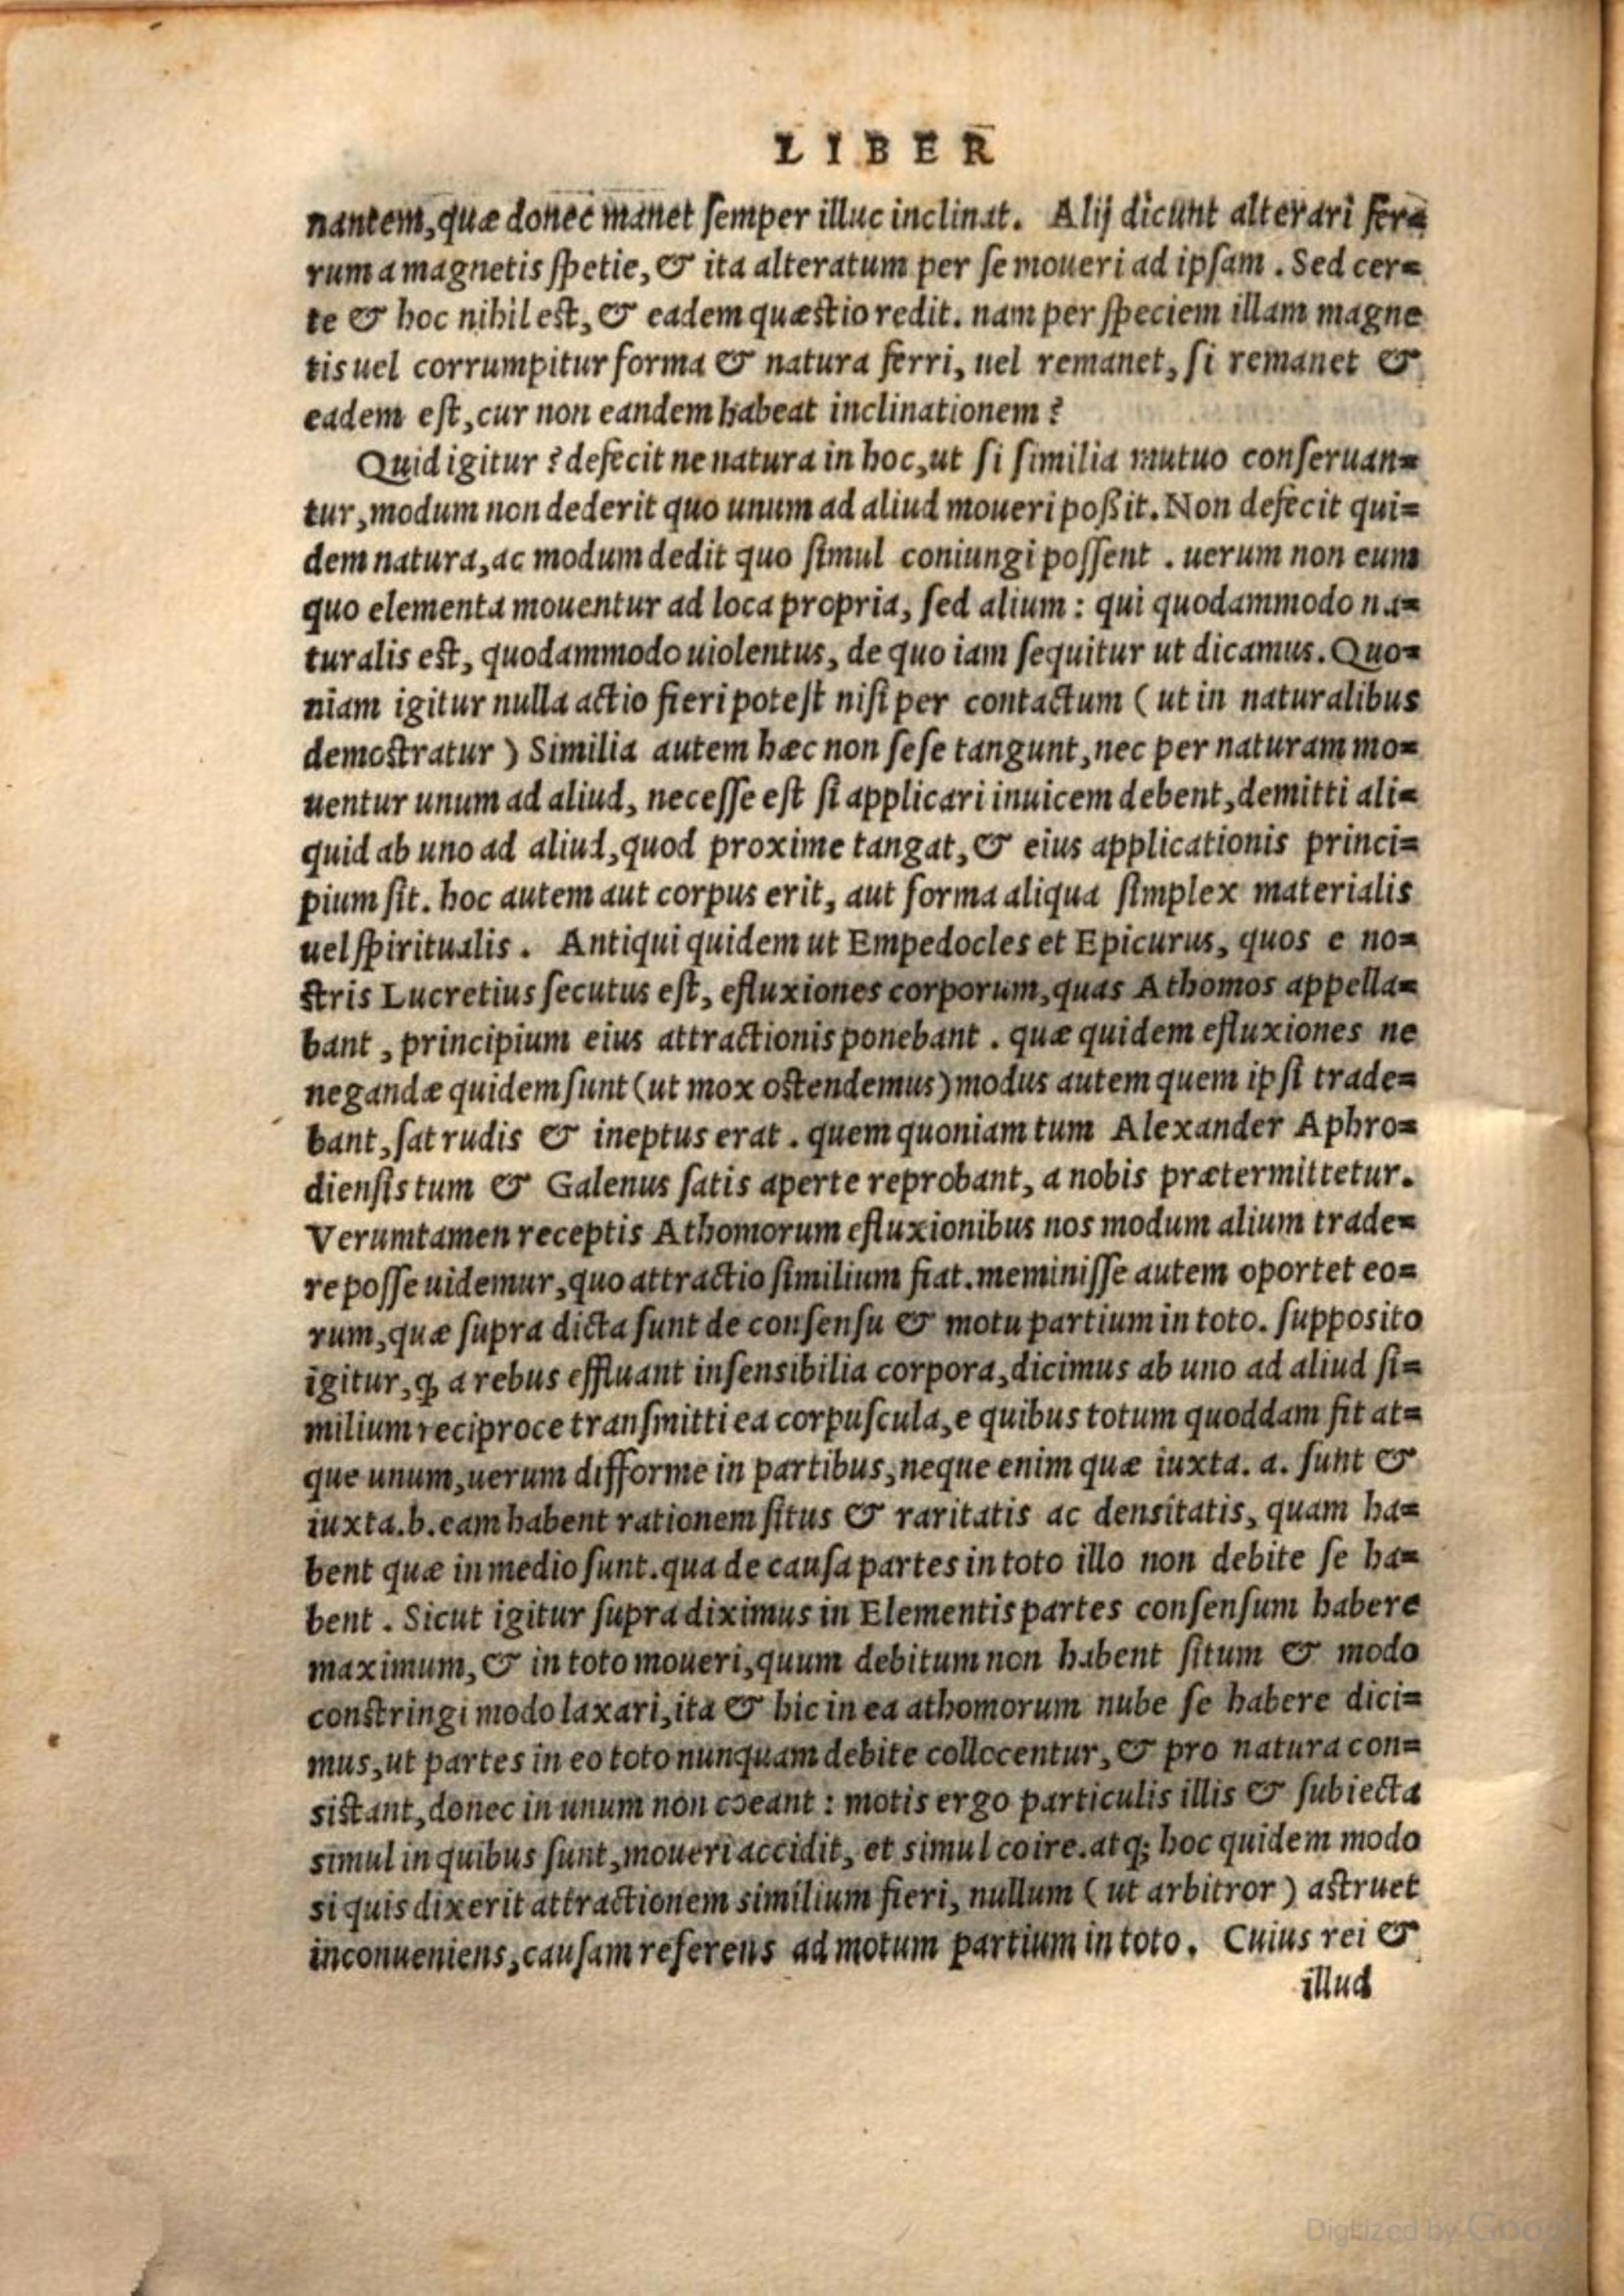 LIBER
nantem, quæ donec manet semper illuc inclinat. Alij dicunt alterari fer=
rum a magnetis spetie, & ita alteratum per se moueri ad ipsam. Sed cer=
te & hoc nihil est, & eadem quæstio redit. nam per speciem illam magne
tis uel corrumpitur forma & natura ferri, uel remanet, si remanet &
eadem est, cur non eandem habeat inclinationem?
Quid igitur? defecit ne natura in hoc, ut si similia mutuo conseruan=
tur, modum non dederit quo unum ad aliud moueri poßit. Non defecit qui=
dem natura, ac modum dedit quo simul coniungi possent. uerum non eum
quo elementa mouentur ad loca propria, sed alium: qui quodammodo na=
turalis est, quodammodo uiolentus, de quo iam sequitur ut dicamus. Quo=
niam igitur nulla actio fieri potest nisi per contactum (ut in naturalibus
demostratur) Similia autem hæc non sese tangunt, nec per naturam mo=
uentur unum ad aliud, necesse est si applicari inuicem debent, demitti ali=
quid ab uno ad aliud, quod proxime tangat, & eius applicationis princi=
pium sit. hoc autem aut corpus erit, aut forma aliqua simplex materialis
uel spiritualis. Antiqui quidem ut Empedocles et Epicurus, quos e no=
stris Lucretius secutus est, efluxiones corporum, quas Athomos appella=
bant, principium eius attractionis ponebant. quæ quidem efluxiones ne
negandæ quidem sunt (ut mox ostendemus) modus autem quem ipsi trade=
bant, sat rudis & ineptus erat. quem quoniam tum Alexander Aphro=
diensis tum & Galenus satis aperte reprobant, a nobis prætermittetur.
Verumtamen receptis Athomorum efluxionibus nos modum alium trade=
re posse uidemur, quo attractio similium fiat. meminisse autem oportet eo=
rum, quæ supra dicta sunt de consensu & motu partium in toto. supposito
igitur, ꝙ a rebus effluant insensibilia corpora, dicimus ab uno ad aliud si=
milium reciproce transmitti ea corpuscula, e quibus totum quoddam fit at=
que unum, uerum difforme in partibus, neque enim quæ iuxta. a. sunt &
iuxta. b. eam habent rationem situs & raritatis ac densitatis, quam ha=
bent quæ in medio sunt. qua de causa partes in toto illo non debite se ha=
bent. Sicut igitur supra diximus in Elementis partes consensum habere
maximum, & in toto moueri, quum debitum non habent situm & modo
constringi modo laxari, ita & hic in ea athomorum nube se habere dici=
mus, ut partes in eo toto nunquam debite collocentur, & pro natura con=
sistant, donec in unum non coeant: motis ergo particulis illis & subiecta
simul in quibus sunt, moueri accidit, et simul coire. atq; hoc quidem modo
si quis dixerit attractionem similium fieri, nullum (ut arbitror) astruet
inconueniens, causam referens ad motum partium in toto. Cuius rei &
illud
Digitized by Google